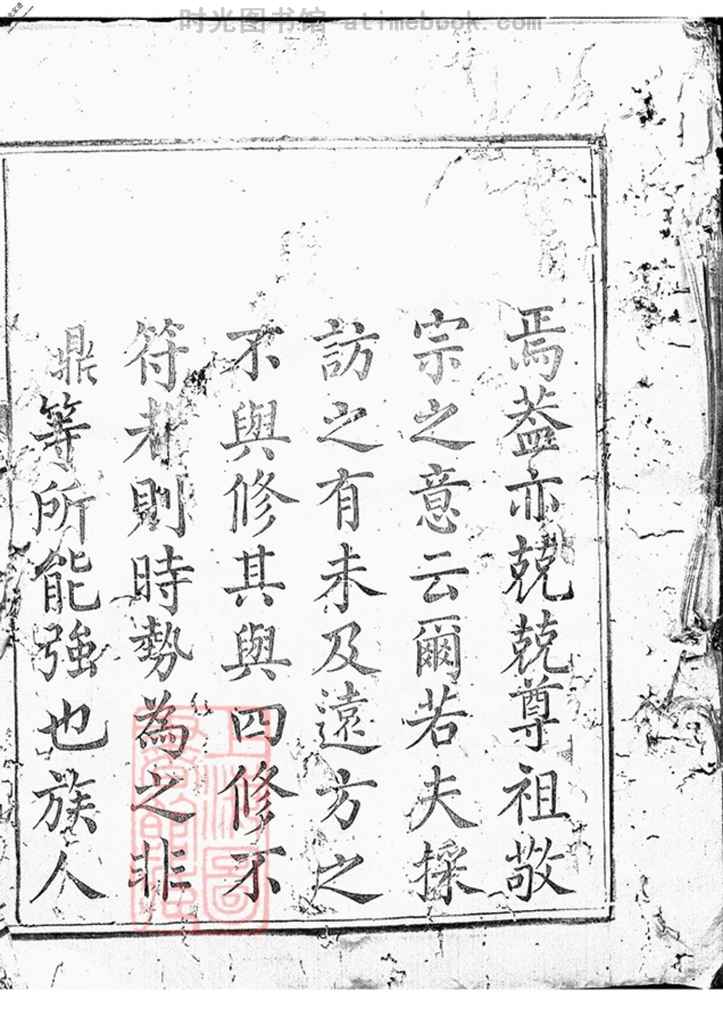 时光图书馆 - atimebook.com
焉葢亦兢兢尊祖敬
宗之意云爾若夫採
訪之有未及遠方之
不與修其與四修不
符者則時勢為之非
鼎等所能強也族人